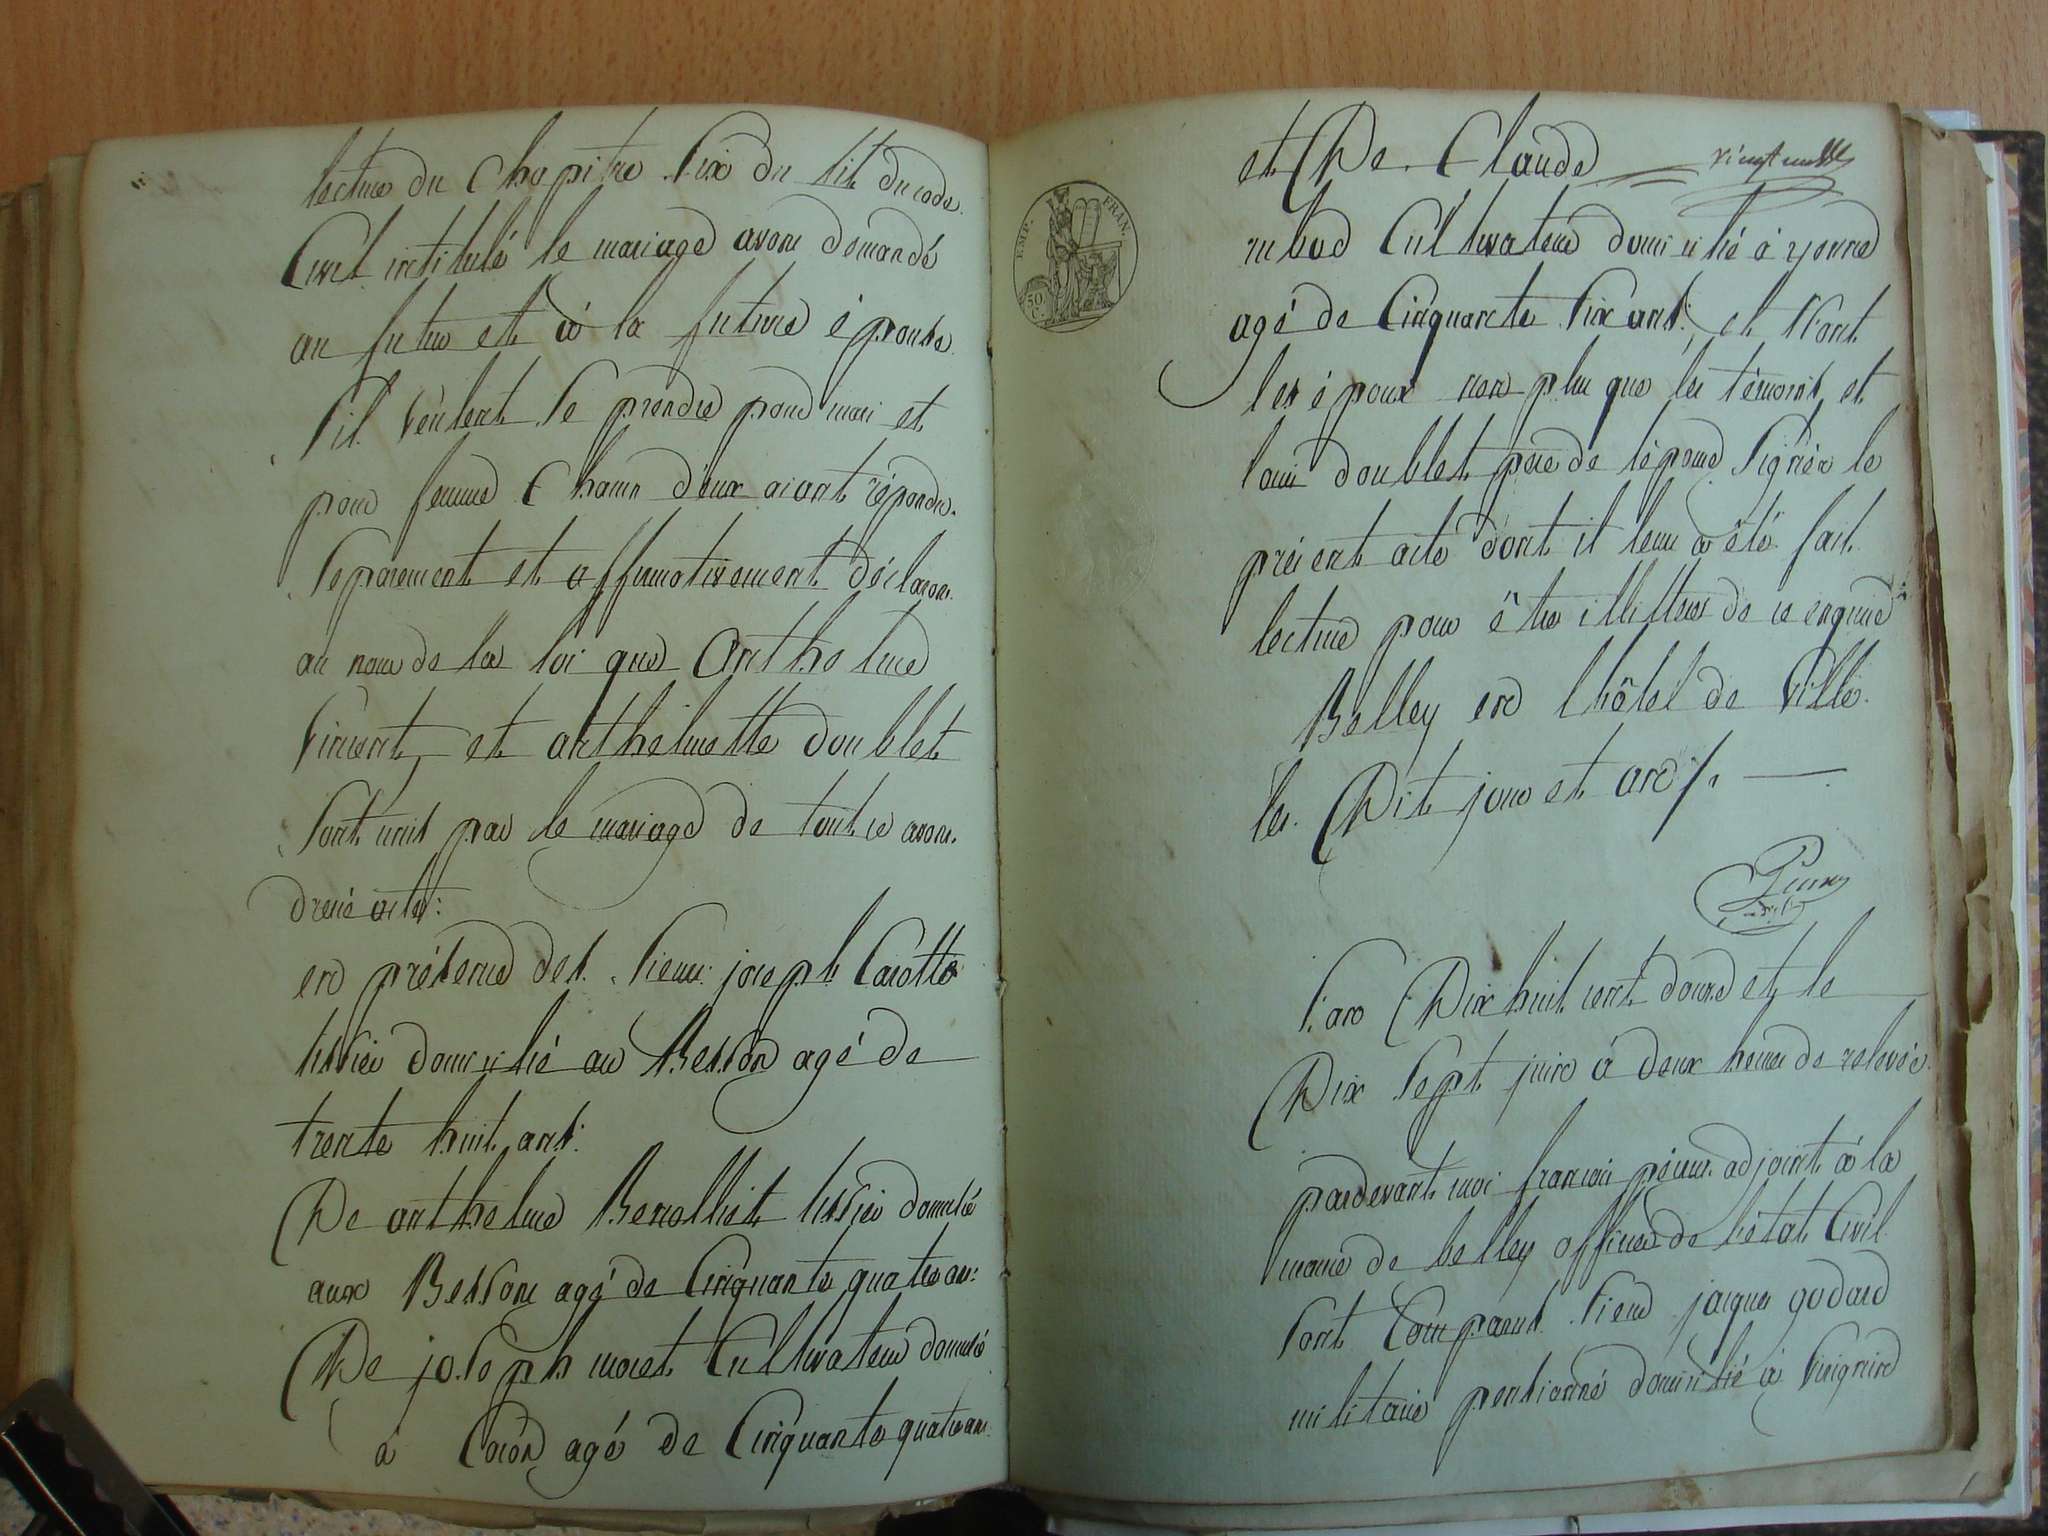 lecture du Chapitre Six du tit du code
Civil intitulé le mariage avons demandé
au futur et à la future épouse
S'il veulent se prendre pour mari et
pour femme Chacun d'eux aiant répondu
Séparement et affirmativement déclarons
au nom de la loi que anthelme
Vincent et anthelmette doublet
Sont unit par le mariage de tout ce avons
dressé acte:
en présence des Sieurs joseph Carotte
tissier domicilié au Besson agé de
trente huit ans:
De anthelme Benolliet tissier domicilié
aux Bessons agé de Cinquante quatre ans:
De joseph moret Cultivateur domicilié
à Coron agé de Cinquante quatre ans
et De Claude
EMP. FRAN.
50 C.
Cultivateur domicilié à yonne
agé de Cinquante Six ans; et N'ont
les époux non plus que les témoins et
louis doublet pere de l'épouse Signér le
présent acte dont il leur a été fait
lecture pour être illitteres de ce enquis
Belley en l'hôtel de Ville
les Dit jour et an /. —
L'an Dix huit cent douze et le
Dix Sept juin à deux heures de relevée
pardevant moi françois peisson adjoint à la
mairie de belley officier de l'état Civil
Sont Comparus Sieur jacques godard
militaire pensionné domicilié à Virignin